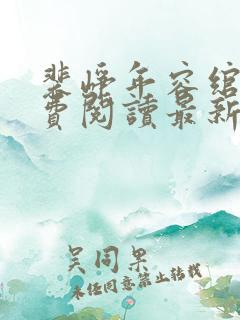 裴崢年容綰
費閱讀最新
吴同果
未经同意禁止转载